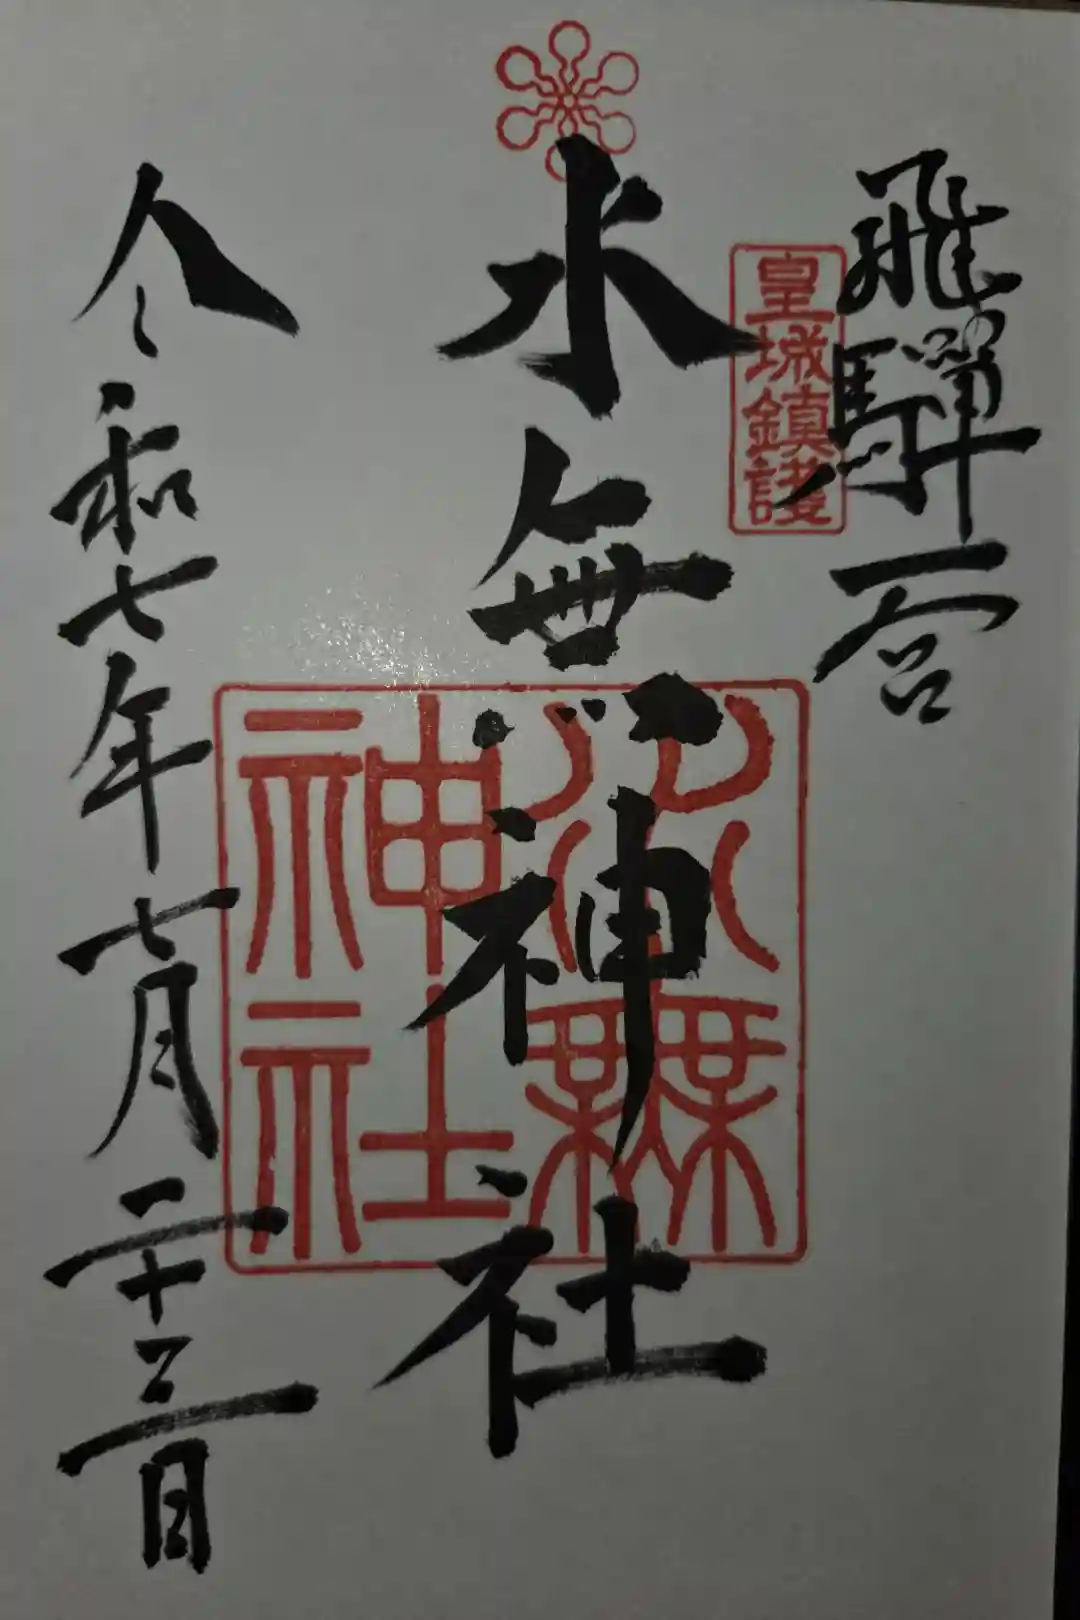 飛驒一宮
皇城鎮護
水無神社
水無神社
令和七年七月二十三日